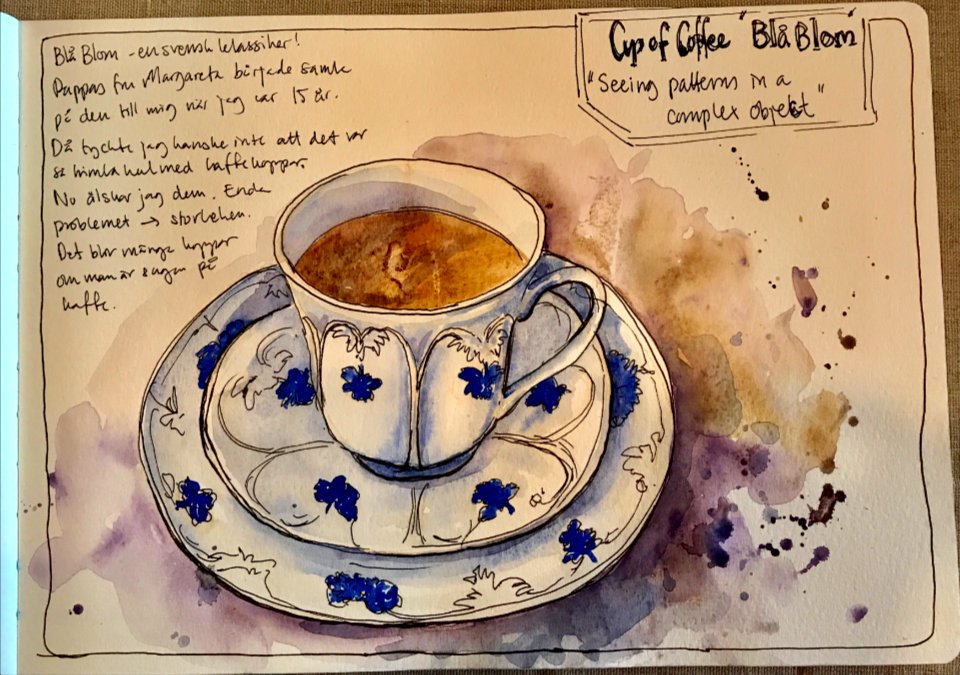 Blå Blom - en svensk klassiker!
Pappas fru Margareta började samla
på den till mig när jag var 15 år.
Då tyckte jag kanske inte att det var
så himla kul med kaffekoppar.
Nu älskar jag dem. Enda
problemet → storleken.
Det blir många koppar
om man är sugen på
kaffe.
Cup of Coffee "Blå Blom"
"Seeing patterns in a
complex objekt"